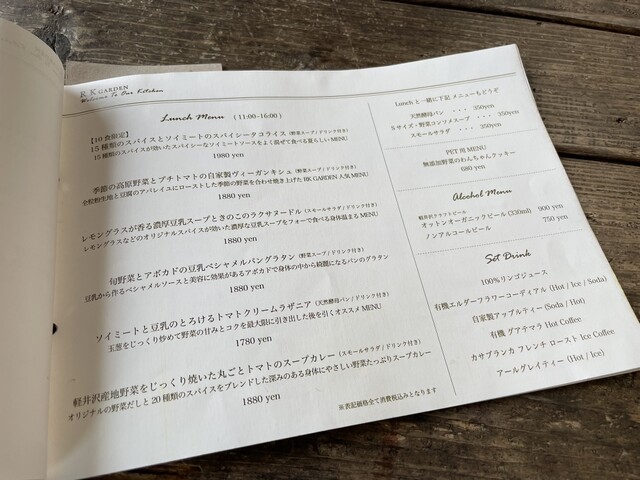 RK GARDEN
Welcome To Our Kitchen
Lunch Menu (11:00-16:00)
【10食限定】
15種類のスパイスとソイミートのスパイシータコライス (野菜スープ/ドリンク付き)
15種類のスパイスが効いたスパイシーなソイミートソースをよく混ぜて食べる夏らしいMENU
1980 yen
季節の高原野菜とプチトマトの自家製ヴィーガンキシュ (野菜スープ/ドリンク付き)
全粒粉生地と豆腐のアパレイユにローストした季節の野菜を合わせ焼き上げたRK GARDEN 人気MENU
1880 yen
レモングラスが香る濃厚豆乳スープときのこのラクサヌードル (スモールサラダ/ドリンク付き)
レモングラスなどのオリジナルスパイスが効いた濃厚な豆乳スープをフォーで食べる身体温まるMENU
1880 yen
旬野菜とアボカドの豆乳ベシャメルパングラタン (野菜スープ/ドリンク付き)
豆乳から作るベシャメルソースと美容に効果があるアボカドで身体の中から綺麗になるパンのグラタン
1880 yen
ソイミートと豆乳のとろけるトマトクリームラザニア (天然酵母パン/ドリンク付き)
玉葱をじっくり炒めて野菜の甘みとコクを最大限に引き出した後を引くオススメMENU
1780 yen
軽井沢産地野菜をじっくり焼いた丸ごとトマトのスープカレー (スモールサラダ/ドリンク付き)
オリジナルの野菜だしと20種類のスパイスをブレンドした深みのある身体にやさしい野菜たっぷりスープカレー
1880 yen
※表記価格全て消費税込みとなります
Lunchと一緒に下記メニューもどうぞ
天然酵母パン ・・・ 350yen
Sサイズ・野菜コンソメスープ ・・・ 350yen
スモールサラダ ・・・ 350yen
PET用MENU
無添加野菜のわんちゃんクッキー
680 yen
Alcohol Menu
軽井沢クラフトビール
オットンオーガニックビール (330ml) 900 yen
ノンアルコールビール 750 yen
Set Drink
100%リンゴジュース
有機エルダーフラワーコーディアル (Hot / Ice / Soda)
自家製アップルティー (Soda / Hot)
有機 グアテマラ Hot Coffee
カサブランカ フレンチ ロースト Ice Coffee
アールグレイティー (Hot / Ice)